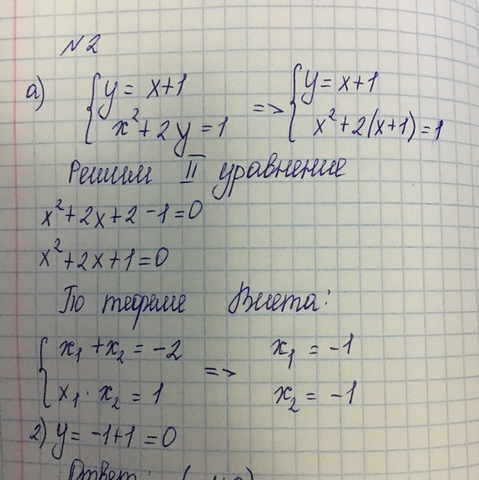 N2
а) { y = x+1 => { y = x+1
x²+2y=1 x²+2(x+1)=1
Решим II уравнение
x²+2x+2-1=0
x²+2x+1=0
По теореме Виета:
{ x₁+x₂=-2 => x₁=-1
x₁·x₂=1 x₂=-1
2) y=-1+1=0
Ответ: